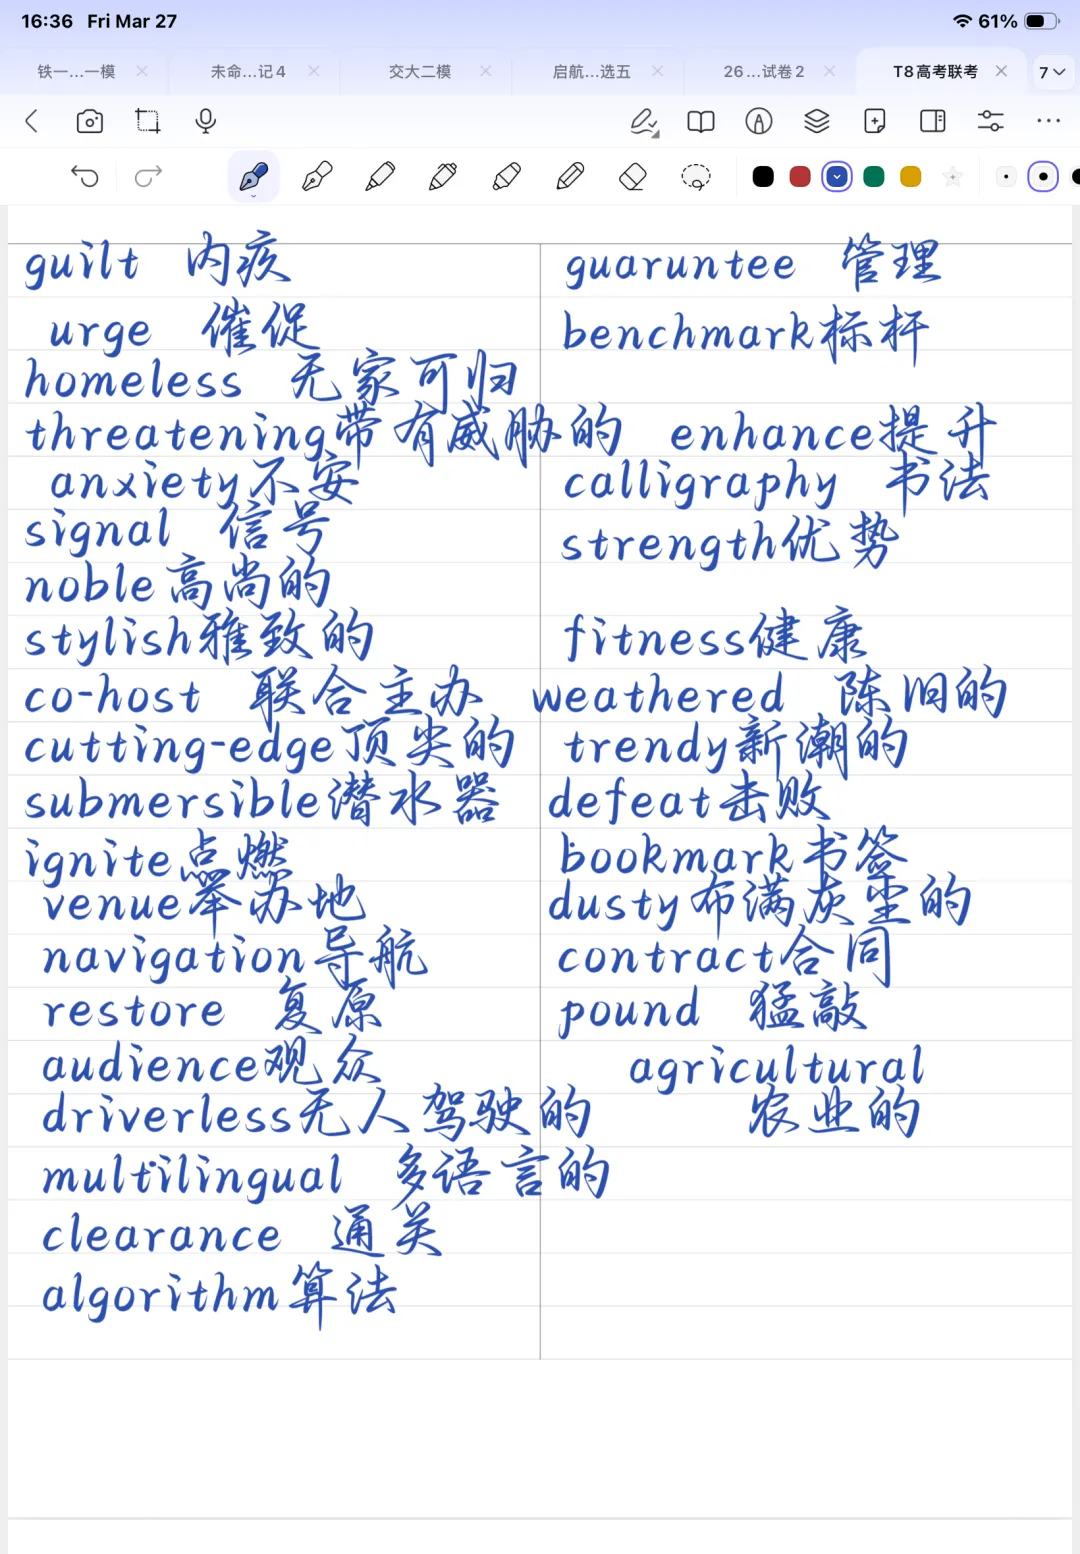 16:36 Fri Mar 27 61%
铁一...一模 未命...记4 交大二模 启航...选五 26...试卷2 T8高考联考 7
guilt 内疚
urge 催促
homeless 无家可归
threatening带有威胁的
anxiety不安
signal 信号
noble高尚的
stylish雅致的
co-host 联合主办
cutting-edge顶尖的
submersible潜水器
ignite点燃
venue举办地
navigation导航
restore 复原
audience观众
driverless无人驾驶的
multilingual 多语言的
clearance 通关
algorithm算法
guaruntee 管理
benchmark标杆
enhance提升
calligraphy 书法
strength优势
fitness健康
weathered 陈旧的
trendy新潮的
defeat击败
bookmark书签
dusty布满灰尘的
contract合同
pound 猛敲
agricultural
农业的